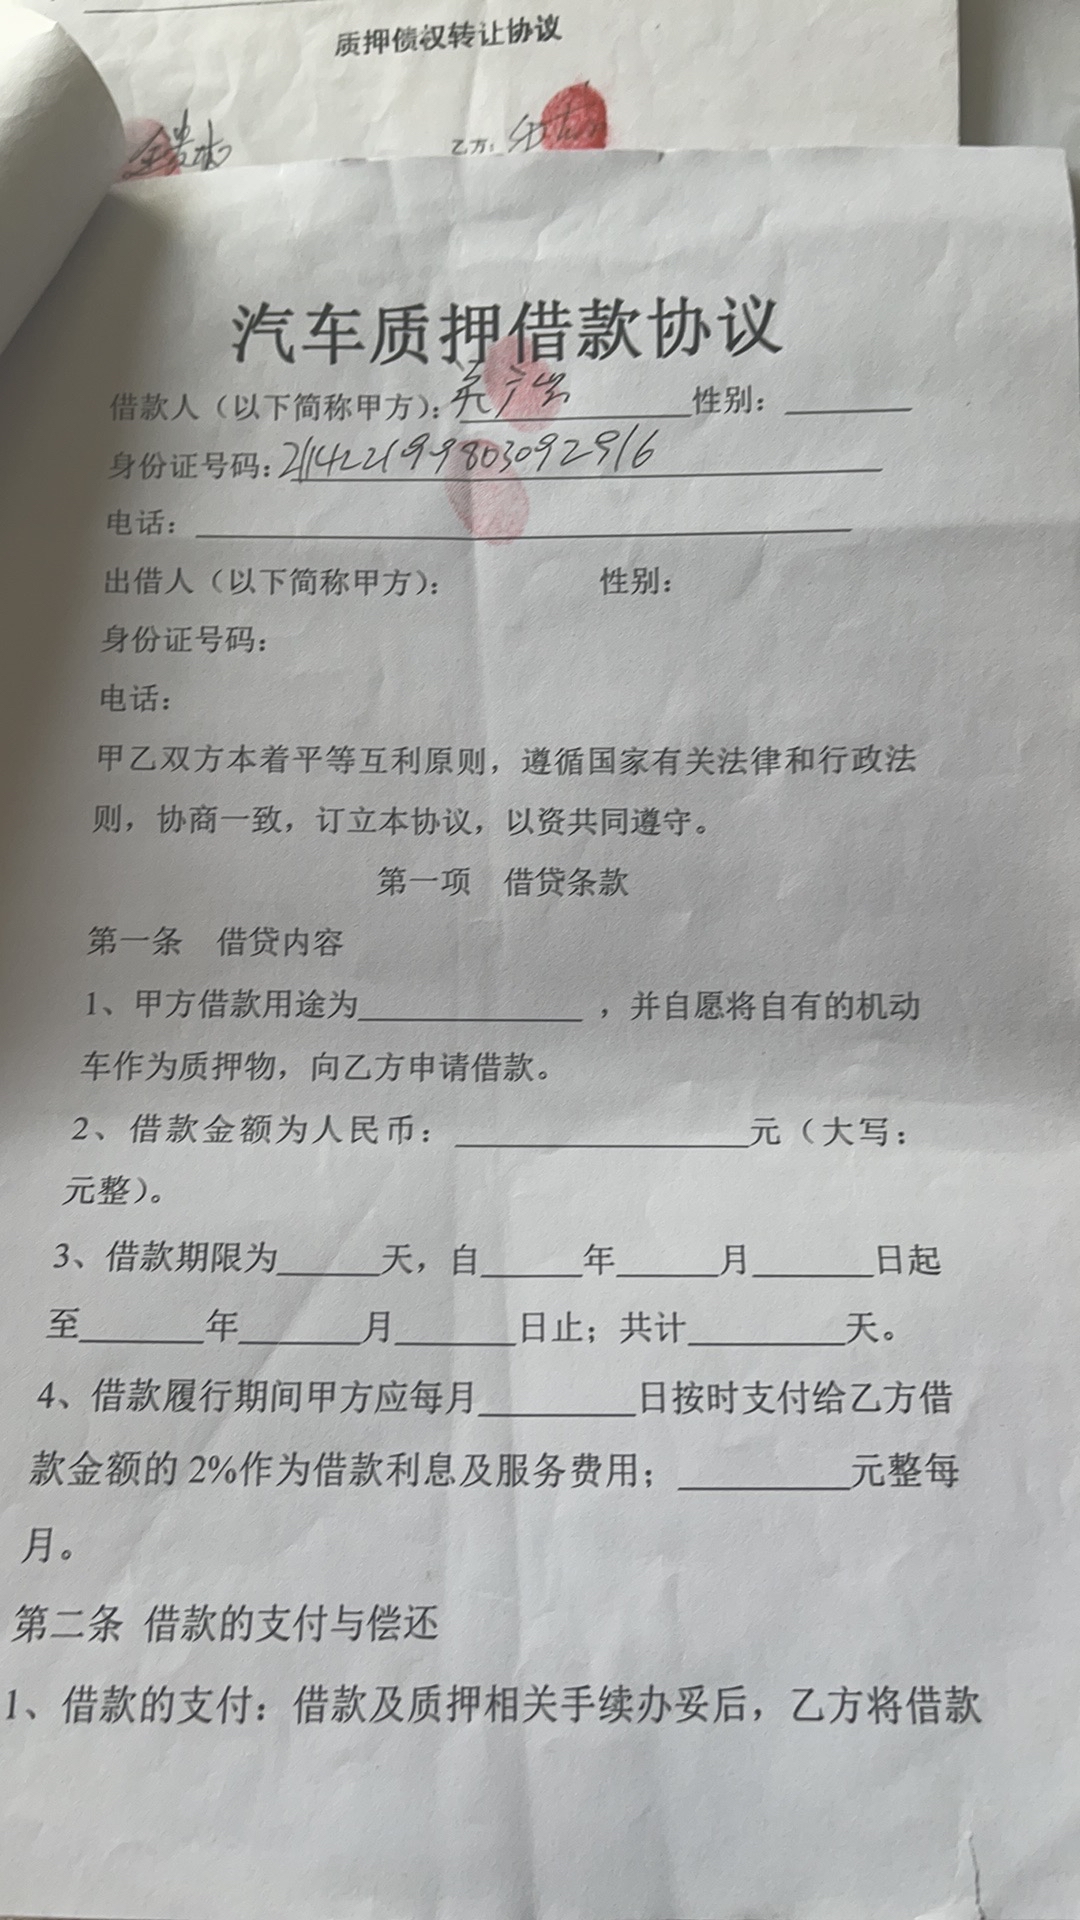 质押债权转让协议
乙方：
汽车质押借款协议
借款人（以下简称甲方）： 性别：
身份证号码：211422199803092916
电话：
出借人（以下简称甲方）： 性别：
身份证号码：
电话：
甲乙双方本着平等互利原则，遵循国家有关法律和行政法
则，协商一致，订立本协议，以资共同遵守。
第一项 借贷条款
第一条 借贷内容
1、甲方借款用途为____________，并自愿将自有的机动
车作为质押物，向乙方申请借款。
2、借款金额为人民币：____________元（大写：
元整）。
3、借款期限为_____天，自_____年_____月_____日起
至_____年_____月_____日止；共计_______天。
4、借款履行期间甲方应每月_______日按时支付给乙方借
款金额的 2%作为借款利息及服务费用；________元整每
月。
第二条 借款的支付与偿还
1、借款的支付：借款及质押相关手续办妥后，乙方将借款